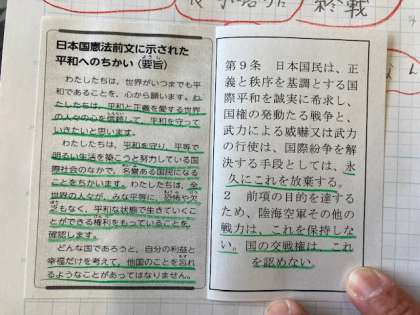 終戦
日本国憲法前文に示された
平和へのちかい(要旨)
わたしたちは、世界がいつまでも平
和であることを、心から願います。わ
たしたちは、平和と正義を愛する世界
の人々の心を信頼して、平和を守って
いきたいと思います。
わたしたちは、平和を守り、平等で
明るい生活を築こうと努力している国
際社会のなかで、名誉ある国民になる
ことをちかいます。わたしたちは、全
世界の人々が、みな平等に、恐怖や欠
乏もなく、平和な状態で生きていくこ
とができる権利をもっていることを、
確認します。
どんな国であろうと、自分の利益と
幸福だけを考えて、他国のことを忘れ
るようなことがあってはなりません。
第9条 日本国民は、正
義と秩序を基調とする国
際平和を誠実に希求し、
国権の発動たる戦争と、
武力による威嚇又は武力
の行使は、国際紛争を解
決する手段としては、永
久にこれを放棄する。
2 前項の目的を達する
ため、陸海空軍その他の
戦力は、これを保持しな
い。国の交戦権は、これ
を認めない。